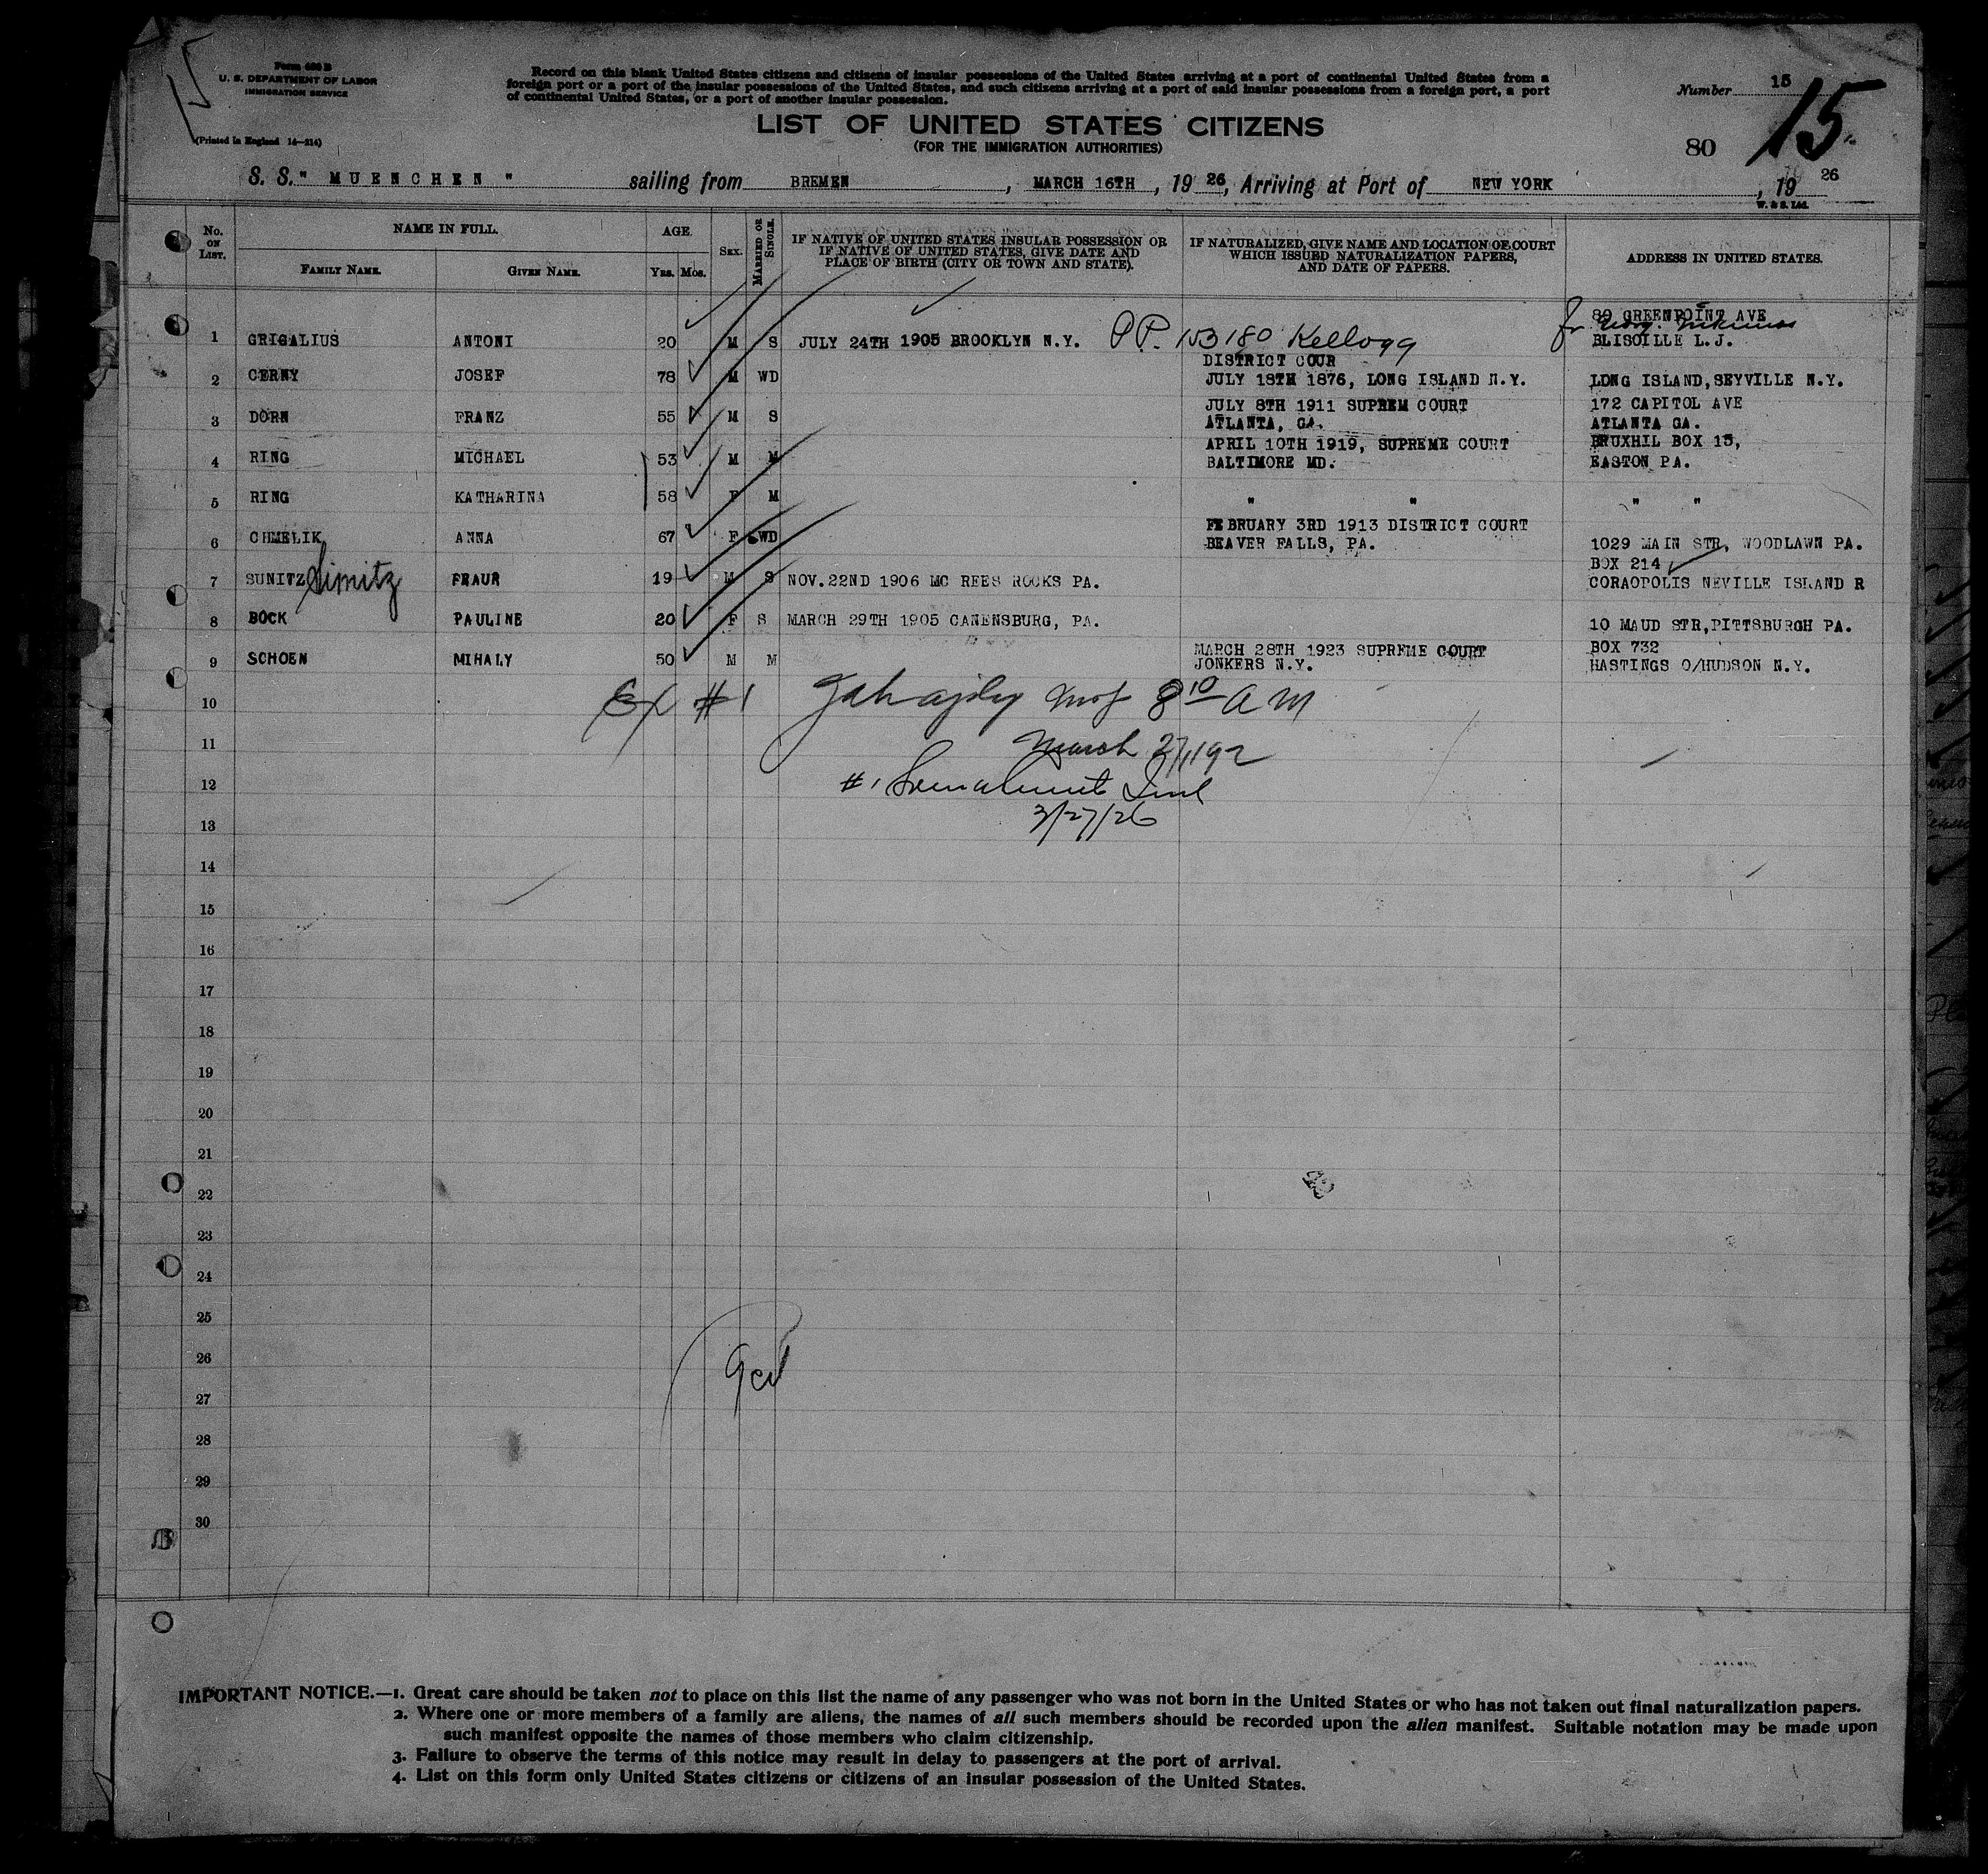 Form 630 B
U. S. DEPARTMENT OF LABOR
IMMIGRATION SERVICE
(Printed in England 14—214)
Record on this blank United States citizens and citizens of insular possessions of the United States arriving at a port of continental United States from a
foreign port or a port of the insular possessions of the United States, and such citizens arriving at a port of said insular possessions from a foreign port, a port
of continental United States, or a port of another insular possession.
Number 15
15
LIST OF UNITED STATES CITIZENS
(FOR THE IMMIGRATION AUTHORITIES)
80
S. S. " MUENCHEN " sailing from BREMEN, MARCH 16TH, 19 26, Arriving at Port of NEW YORK, 19 26
W. & S. Ltd.
No. ON LIST.
NAME IN FULL.
FAMILY NAME. GIVEN NAME.
AGE.
YRS. MOS.
SEX.
MARRIED OR SINGLE.
IF NATIVE OF UNITED STATES INSULAR POSSESSION OR
IF NATIVE OF UNITED STATES, GIVE DATE AND
PLACE OF BIRTH (CITY OR TOWN AND STATE).
IF NATURALIZED, GIVE NAME AND LOCATION OF COURT
WHICH ISSUED NATURALIZATION PAPERS,
AND DATE OF PAPERS.
ADDRESS IN UNITED STATES.
80 GREENPOINT AVE
1 GRIGALIUS ANTONI 20 M S JULY 24TH 1905 BROOKLYN N.Y. PP. 153180 Kellogg BLISOILLE L.J.
DISTRICT COUR
2 CERNY JOSEF 78 M WD JULY 18TH 1876, LONG ISLAND N.Y. LONG ISLAND, SEYVILLE N.Y.
JULY 8TH 1911 SUPREM COURT 172 CAPITOL AVE
3 DORN FRANZ 55 M S ATLANTA, GA. ATLANTA GA.
APRIL 10TH 1919, SUPREME COURT BRUXHIL BOX 15,
4 RING MICHAEL 53 M M BALTIMORE MD. EASTON PA.
5 RING KATHARINA 58 F M " " " "
FEBRUARY 3RD 1913 DISTRICT COURT
6 CHMELIK ANNA 67 F WD BEAVER FALLS, PA. 1029 MAIN STR, WOODLAWN PA.
BOX 214
7 SUNITZ Simitz FRAUR 19 M S NOV. 22ND 1906 MC REES ROCKS PA. CORAOPOLIS NEVILLE ISLAND R
8 BOCK PAULINE 20 F S MARCH 29TH 1905 CANENSBURG, PA. 10 MAUD STR, PITTSBURGH PA.
MARCH 28TH 1923 SUPREME COURT BOX 732
9 SCHOEN MIHALY 50 M M JONKERS N.Y. HASTINGS O/HUDSON N.Y.
10 Ex #1 8 10 AM
11 March 27, 192
12 #1
13 3/27/26
14
15
16
17
18
19
20
21
22
23
24
25
26
27
28
29
30
IMPORTANT NOTICE.—1. Great care should be taken not to place on this list the name of any passenger who was not born in the United States or who has not taken out final naturalization papers.
2. Where one or more members of a family are aliens, the names of all such members should be recorded upon the alien manifest. Suitable notation may be made upon
such manifest opposite the names of those members who claim citizenship.
3. Failure to observe the terms of this notice may result in delay to passengers at the port of arrival.
4. List on this form only United States citizens or citizens of an insular possession of the United States.